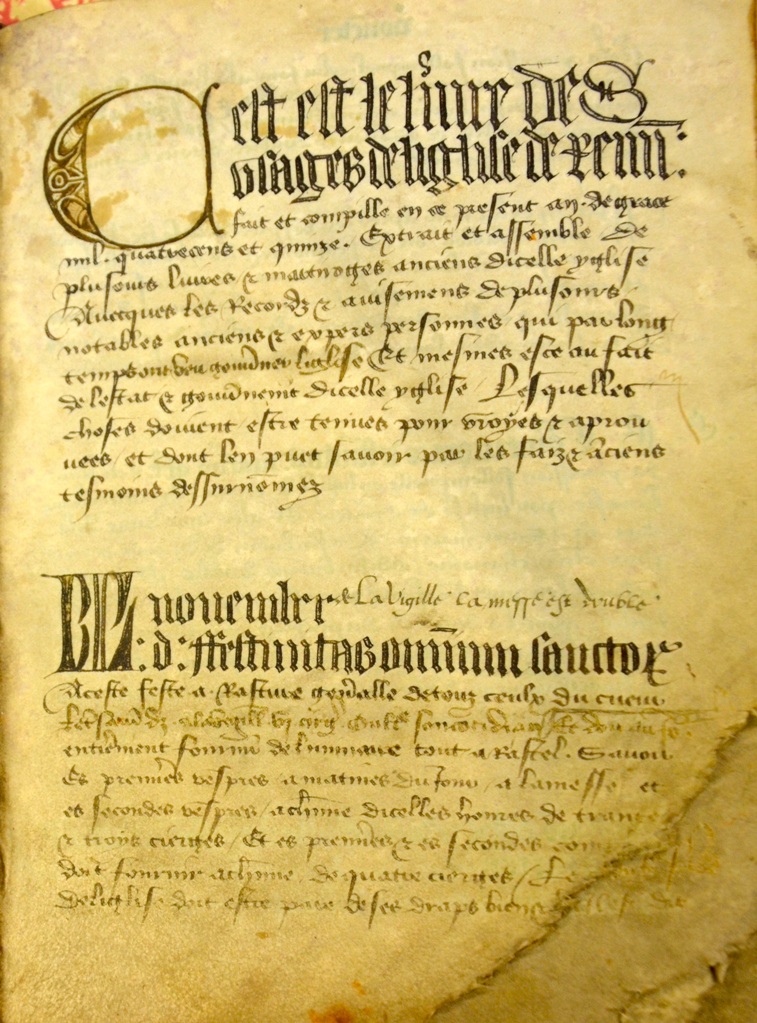 Cest est le livre des
usaiges de liglise de Renn:
fait et compille en ce present an de grace
mil quatrecens et quinze. Extrait et assemble de
plusours livres & martroges anciens dicelle yglise
Avecques les Recordz & avisemens de plusours
notables anciens & expers personnes qui par long
temps ont veu gouverner liglise Et mesmes esce au fait
de lestat & gouvernement dicelle yglise. Lesquelles
choses doivent estre tenues pour vroyes & aprou
vees et dont len puet savoir par les faiz & anciens
tesmoins dessurnomez
novembre de La Vigille La messe est double
: d: ffestivitas omnium sanctor
A ceste feste a Rasture generalle de touz ceulx du cueur
entierement fournir de luminaire tout a Rastel. Savoir
Es premieres vespres a matines du jour a la messe et
es secondes vespres a chacune dicelles houres de trante
& troys cierges. Et es premieres & es secondes
doit fournir a chacune de quatre cierges
de liglise doit estre pare de ses draps